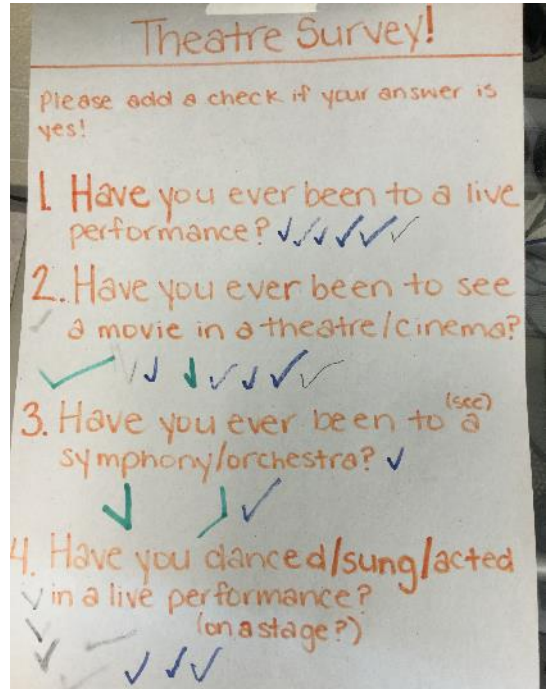 Theatre Survey!
Please add a check if your answer is
yes!
1. Have you ever been to a live
performance?
2. Have you ever been to see
a movie in a theatre/cinema?
3. Have you ever been to (see) a
symphony/orchestra?
4. Have you danced/sung/acted
in a live performance?
(on a stage?)